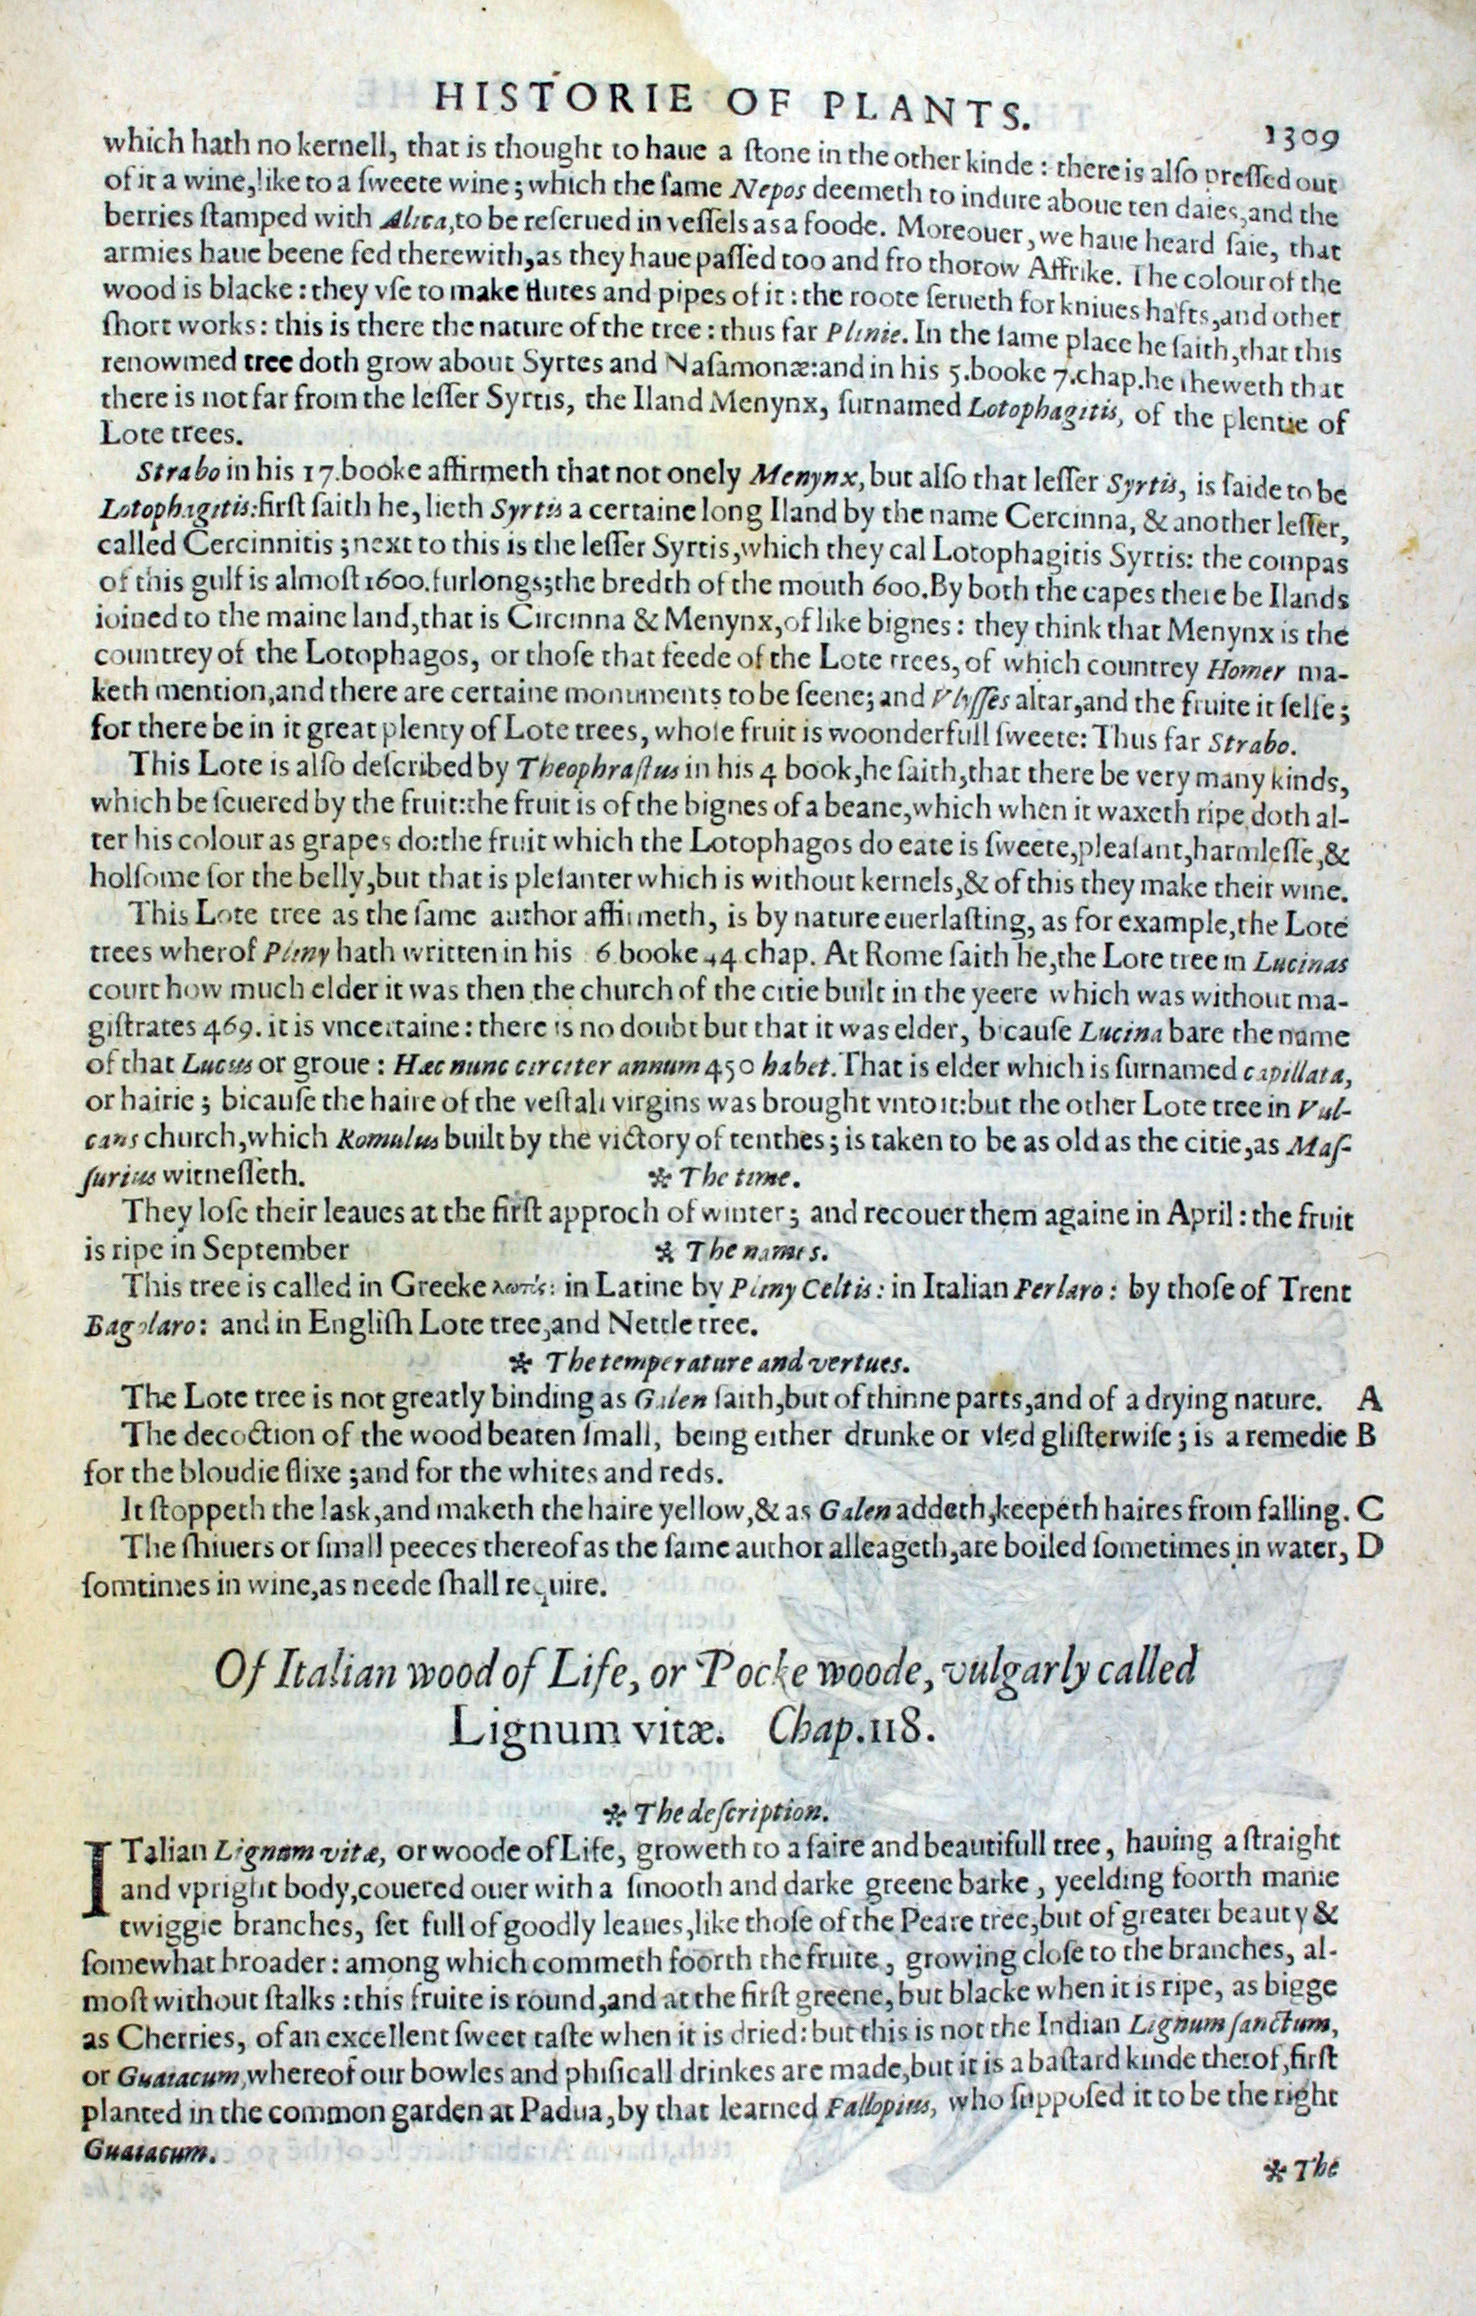 HISTORIE OF PLANTS.
1309
which hath no kernell, that is thought to haue a ſtone in the other kinde: there is alſo preſſed out
of it a wine, like to a ſweete wine; which the ſame Nepos deemeth to indure aboue ten daies, and the
berries ſtamped with Alica, to be reſerued in veſſels as a foode. Moreouer, we haue heard ſaie, that
armies haue beene fed therewith, as they haue paſſed too and fro thorow Affrike. The colour of the
wood is blacke: they vſe to make flutes and pipes of it: the roote ſerueth for kniues hafts, and other
ſhort works: this is there the nature of the tree: thus far Plinie. In the ſame place he ſaith, that this
renowmed tree doth grow about Syrtes and Naſamonæ: and in his 5. booke 7. chap. he ſheweth that
there is not far from the leſſer Syrtis, the Iland Menynx, ſurnamed Lotophagitis, of the plentie of
Lote trees.
Strabo in his 17. booke affirmeth that not onely Menynx, but alſo that leſſer Syrtis, is ſaide to be
Lotophagitis: firſt ſaith he, lieth Syrtis a certaine long Iland by the name Cercinna, & another leſſer,
called Cercinnitis; next to this is the leſſer Syrtis, which they cal Lotophagitis Syrtis: the compas
of this gulf is almoſt 1600. furlongs; the bredth of the mouth 600. By both the capes there be Ilands
ioined to the maine land, that is Circinna & Menynx, of like bignes: they think that Menynx is the
countrey of the Lotophagos, or thoſe that feede of the Lote trees, of which countrey Homer ma-
keth mention, and there are certaine monuments to be ſeene; and Vlyſſes altar, and the fruite it ſelfe;
for there be in it great plenty of Lote trees, whoſe fruit is woonderfull ſweete: Thus far Strabo.
This Lote is alſo deſcribed by Theophraſtus in his 4 book, he ſaith, that there be very many kinds,
which be ſeuered by the fruit: the fruit is of the bignes of a beane, which when it waxeth ripe doth al-
ter his colour as grapes do: the fruit which the Lotophagos do eate is ſweete, pleaſant, harmleſſe, &
holſome for the belly, but that is pleſanter which is without kernels, & of this they make their wine.
This Lote tree as the ſame author affirmeth, is by nature euerlaſting, as for example, the Lote
trees wherof Pliny hath written in his 6 booke 44 chap. At Rome ſaith he, the Lote tree in Lucinas
court how much elder it was then the church of the citie built in the yeere which was without ma-
giſtrates 469. it is vncertaine: there is no doubt but that it was elder, bicauſe Lucina bare the name
of that Lucus or groue: Hæc nunc circiter annum 450 habet. That is elder which is ſurnamed capillata,
or hairie; bicauſe the haire of the veſtall virgins was brought vnto it: but the other Lote tree in Vul-
cans church, which Romulus built by the victory of tenthes; is taken to be as old as the citie, as Maſ-
ſurius witneſſeth.
✻ The time.
They loſe their leaues at the firſt approch of winter; and recouer them againe in April: the fruit
is ripe in September
✻ The names.
This tree is called in Greeke λωτός: in Latine by Pliny Celtis: in Italian Perlaro: by thoſe of Trent
Bagolaro: and in Engliſh Lote tree, and Nettle tree.
✻ The temperature and vertues.
The Lote tree is not greatly binding as Galen ſaith, but of thinne parts, and of a drying nature. A
The decoction of the wood beaten ſmall, being either drunke or vſed gliſterwiſe; is a remedie B
for the bloudie flixe; and for the whites and reds.
It ſtoppeth the lask, and maketh the haire yellow, & as Galen addeth, keepeth haires from falling. C
The ſhiuers or ſmall peeces thereof as the ſame author alleageth, are boiled ſometimes in water, D
ſomtimes in wine, as neede ſhall require.
Of Italian wood of Life, or Pocke woode, vulgarly called
Lignum vitæ. Chap. 118.
✻ The deſcription.
ITalian Lignum vitæ, or woode of Life, groweth to a faire and beautifull tree, hauing a ſtraight
and vpright body, couered ouer with a ſmooth and darke greene barke, yeelding foorth manie
twiggie branches, ſet full of goodly leaues, like thoſe of the Peare tree, but of greater beauty &
ſomewhat broader: among which commeth foorth the fruite, growing cloſe to the branches, al-
moſt without ſtalks: this fruite is round, and at the firſt greene, but blacke when it is ripe, as bigge
as Cherries, of an excellent ſweet taſte when it is dried: but this is not the Indian Lignum ſanctum,
or Guaiacum, whereof our bowles and phiſicall drinkes are made, but it is a baſtard kinde therof, firſt
planted in the common garden at Padua, by that learned Fallopius, who ſuppoſed it to be the right
Guaiacum.
✻ The